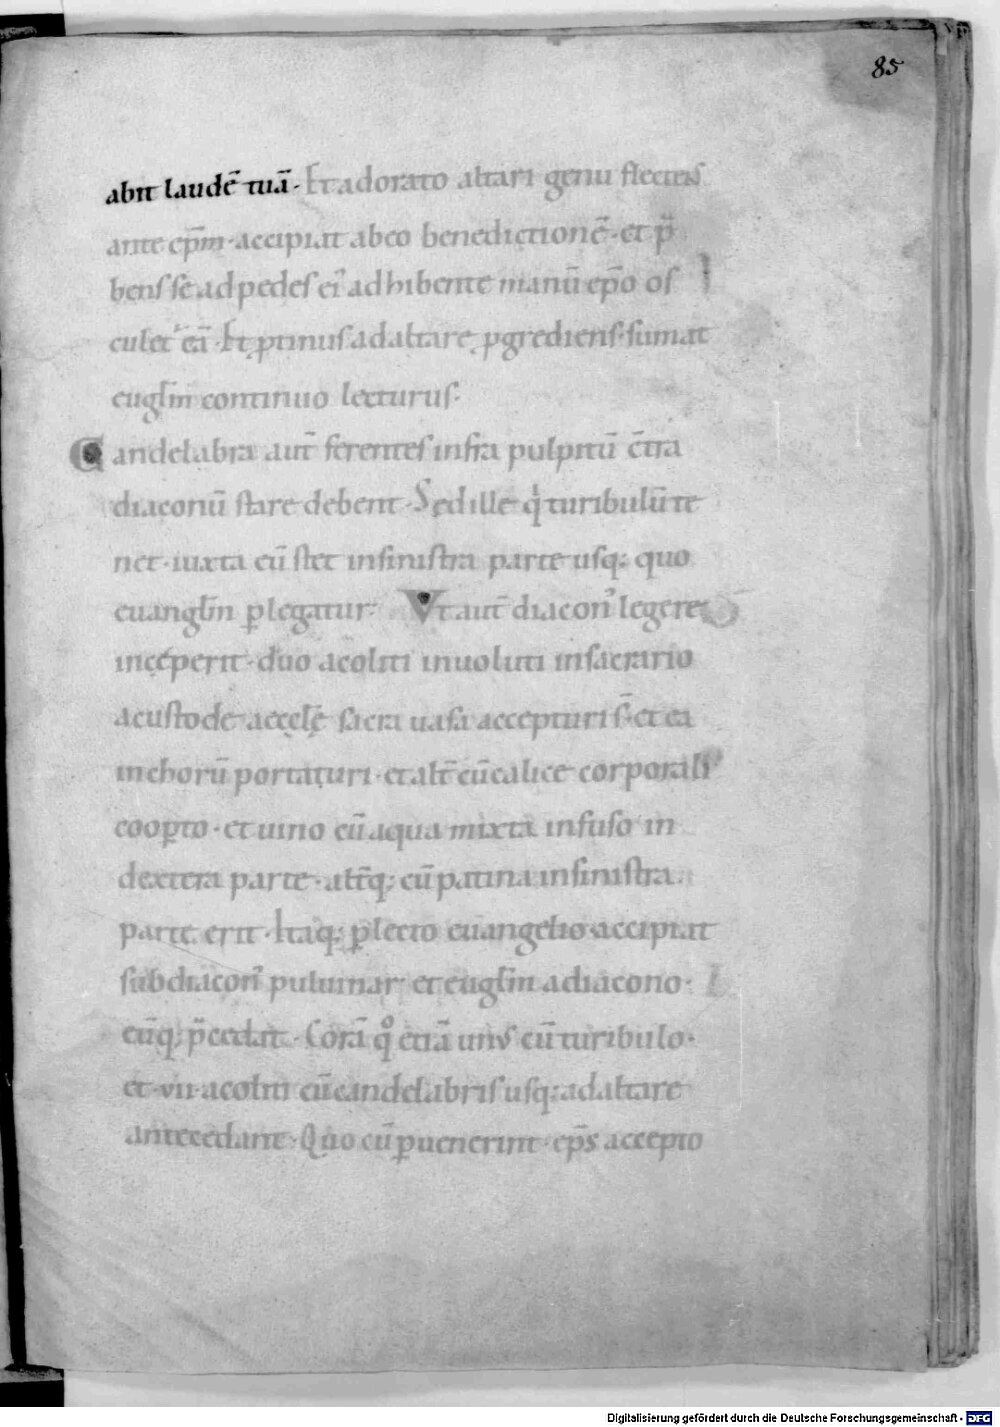 85
abit laudē tuā. Et adorato altari genu flectens
ante ep̄m. accipiat ab eo benedictionē. et p̄
bens se ad pedes ei᷒ adhibente manū ep̄o os
culet᷑ eā. Et ꝓtinus ad altare ꝓgrediens. sumat
eugl̄m continuo lecturus.
Candelabra aut̄ ferentes infra pulpitū c̄tra
diaconū stare debent. Sed ille qͥ turibulū te
net. iuxta eū stet in sinistra parte usq; quo
euangl̄m ꝑlegatur. Vt aut̄ diacon᷒ legere
incęperit. duo acoliti inuoluti in sacrario
a custode aecclę̄ sacra uasa accepturi s̄. et ea
in chorū portaturi. et alt̄ cū calice corporali
cooꝑto. et uino cū aqua mixta infuso in
dextera parte. alt̄q; cū patina in sinistra
parte erit. Itaq; ꝑlecto euangelio accipiat
subdiacon᷒ puluinar et eugl̄m a diacono.
eūq; p̄cedat. Corā qͦ etiā unus cū turibulo.
et vii acoliti cū candelabris usq; ad altare
antecedant. Quo cū ꝑuenerint. ep̄s accepto
Digitalisierung gefördert durch die Deutsche Forschungsgemeinschaft - DFG